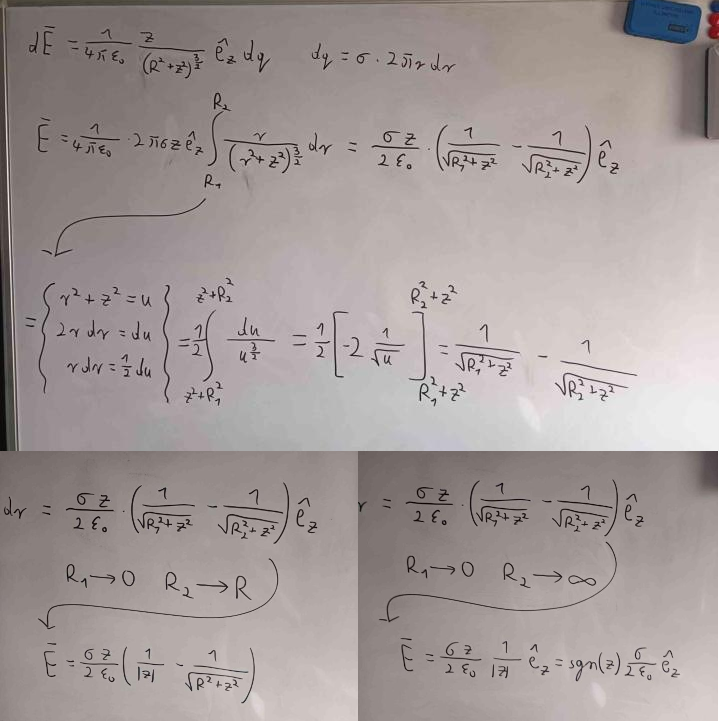 dĒ = 1/(4πε₀) z/(R²+z²)^(3/2) ê_z dq    dq = σ · 2πr dr
Ē = 1/(4πε₀) · 2πσz ê_z ∫_{R₁}^{R₂} r/(r²+z²)^(3/2) dr = σz/(2ε₀) · (1/√(R₁²+z²) − 1/√(R₂²+z²)) ê_z
= { r²+z² = u
2r dr = du
r dr = ½ du } = ½ ∫_{z²+R₁²}^{z²+R₂²} du/u^(3/2) = ½ [-2 1/√u]_{R₁²+z²}^{R₂²+z²} = 1/√(R₁²+z²) − 1/√(R₂²+z²)
dr = σz/(2ε₀) · (1/√(R₁²+z²) − 1/√(R₂²+z²)) ê_z
R₁ → 0  R₂ → R
Ē = σz/(2ε₀) (1/|z| − 1/√(R²+z²))
r = σz/(2ε₀) · (1/√(R₁²+z²) − 1/√(R₂²+z²)) ê_z
R₁ → 0  R₂ → ∞
Ē = σz/(2ε₀) 1/|z| ê_z = sgn(z) σ/(2ε₀) ê_z